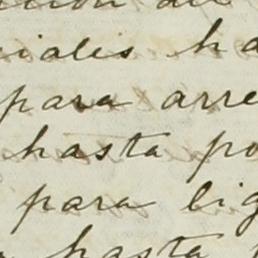 iales ha
para arre
hasta po
para lig
hasta